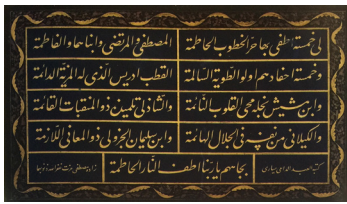 لي خمسة اطفي بها حر الخطوب الحاطمة المصطفى والمرتضى وابناهما والفاطمة
وخمسة احفادهم اولو الطوية السالمة القطب ادريس الذي له المزية الدائمة
وابن مشيش نجله محيي القلوب النائمة والشاذلي تلميذه ذو المنقبات القائمة
والكيلاني من تفرد في الجلال الهائمة وابن سليمان الجزولي ذو المعاني اللازمة
بجاههم يا ربنا اطف النار الحاطمة